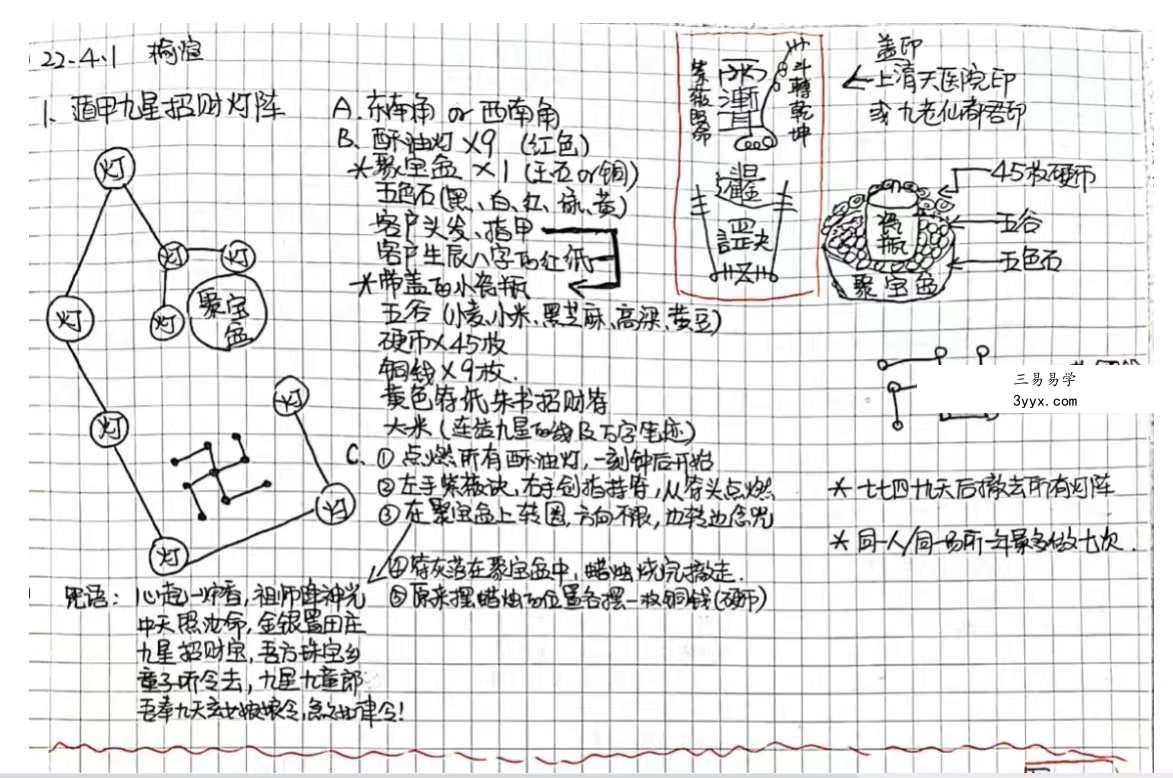 22-4.1
1. 遁甲九星招财灯阵
灯
灯
灯
灯
灯
聚宝盆
灯
灯
灯
灯
A. 东南角 or 西南角
B. 酥油灯 ×9 (红色)
*聚宝盆 ×1 (玉石or铜)
五色石(黑、白、红、绿、黄)
客户头发、指甲
客户生辰八字的红纸
*带盖的小瓷瓶
五谷(小麦、小米、黑芝麻、高粱、黄豆)
硬币×45枚
铜钱×9枚.
黄色符纸朱书招财符
大米(连结九星的线及万字笔迹)
C. ①点燃所有酥油灯,一刻钟后开始
②左手紫薇诀,右手剑指持符,从符头点燃
③在聚宝盆上转圈,方向不限,边转边念咒
④符灰落在聚宝盆中,蜡烛烧完撤走.
⑤原来摆蜡烛的位置各摆一枚铜钱(硬币)
咒语:心起一炉香,祖师降神光
中天照汝命,金银置田庄
九星招财宝,吾方珠宝乡
童子听令去,九星九童郎
吾奉九天玄女娘娘令,急急如律令!
紫薇照命
斗转乾坤
盖印
上清天医院印
或九老仙都君印
45枚硬币
五谷
五色石
瓷瓶
聚宝盆
三易易学
3yyx.com
* 七七四十九天后撤去所有灯阵
* 同一人/同一场所一年最多做七次.